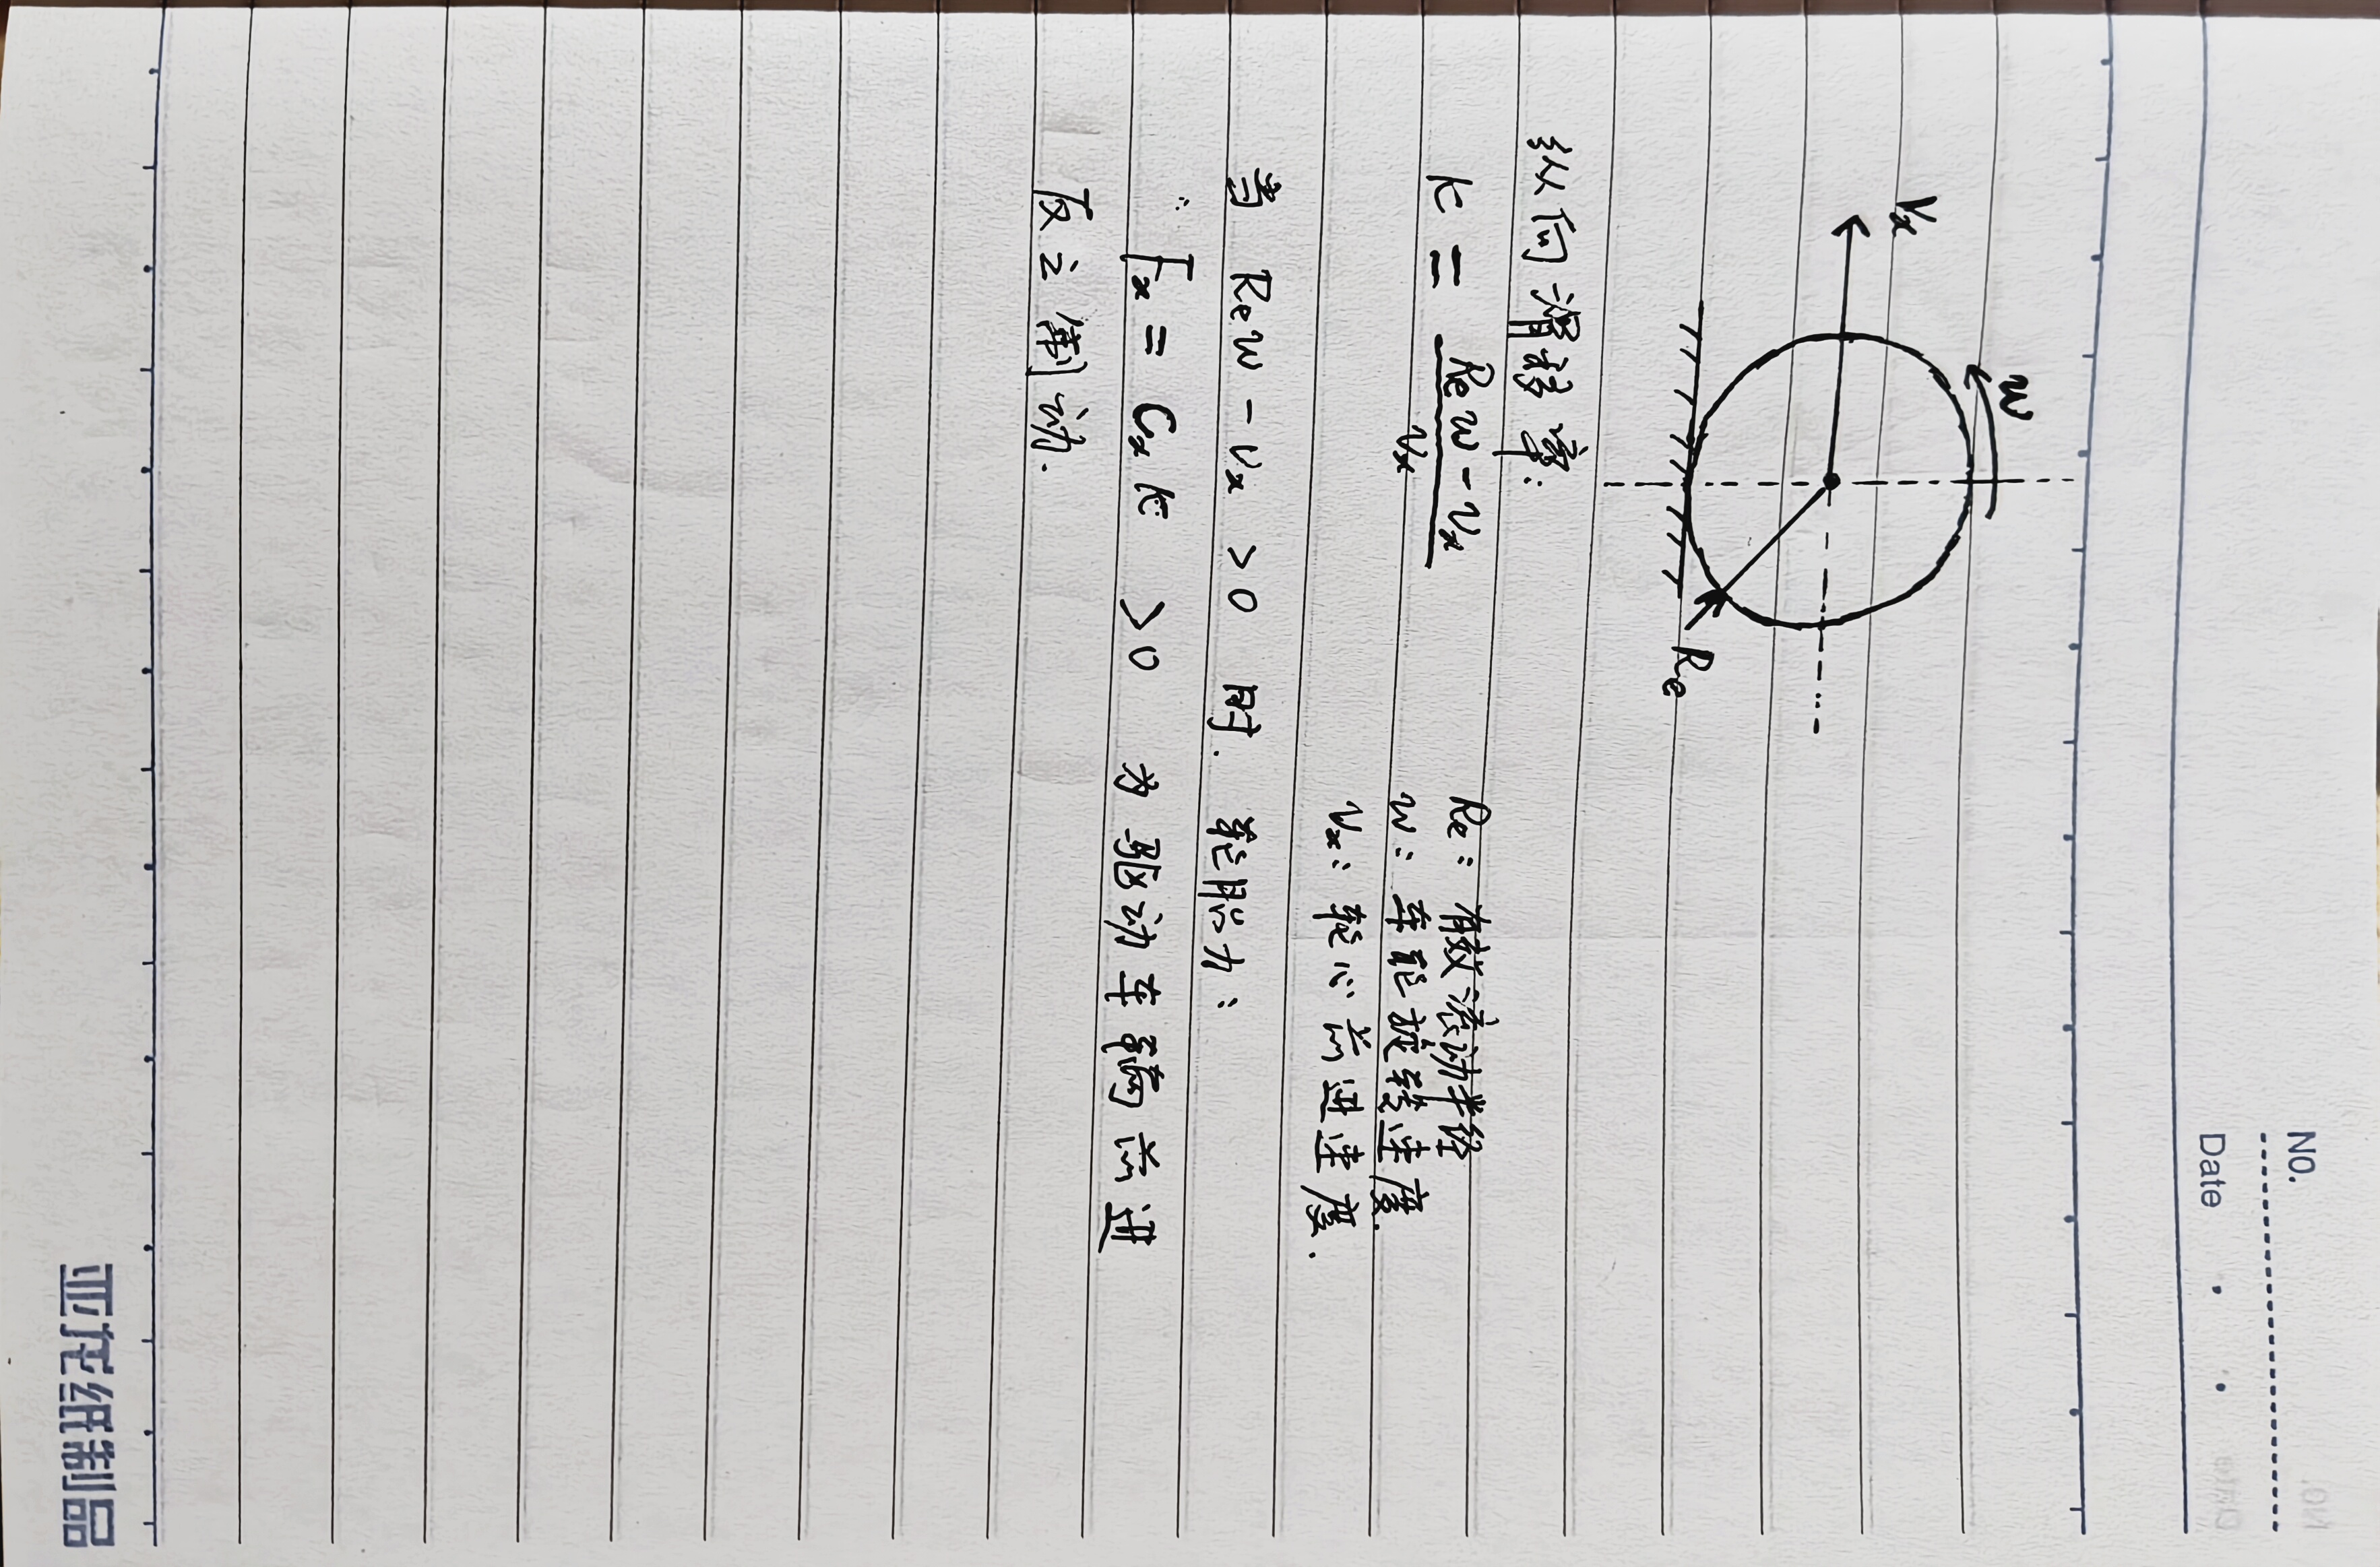 NO.
Date
Vx
w
Re
纵向滑移率:
K = (Rew - vx) / vx
Re: 有效滚动半径
w: 车轮旋转速度.
vx: 轮心前进速度.
当 Rew - vx > 0 时. 轮胎力:
∴ Fx = Cx K > 0 为驱动车辆前进
反之制动.
亚龙纸制品